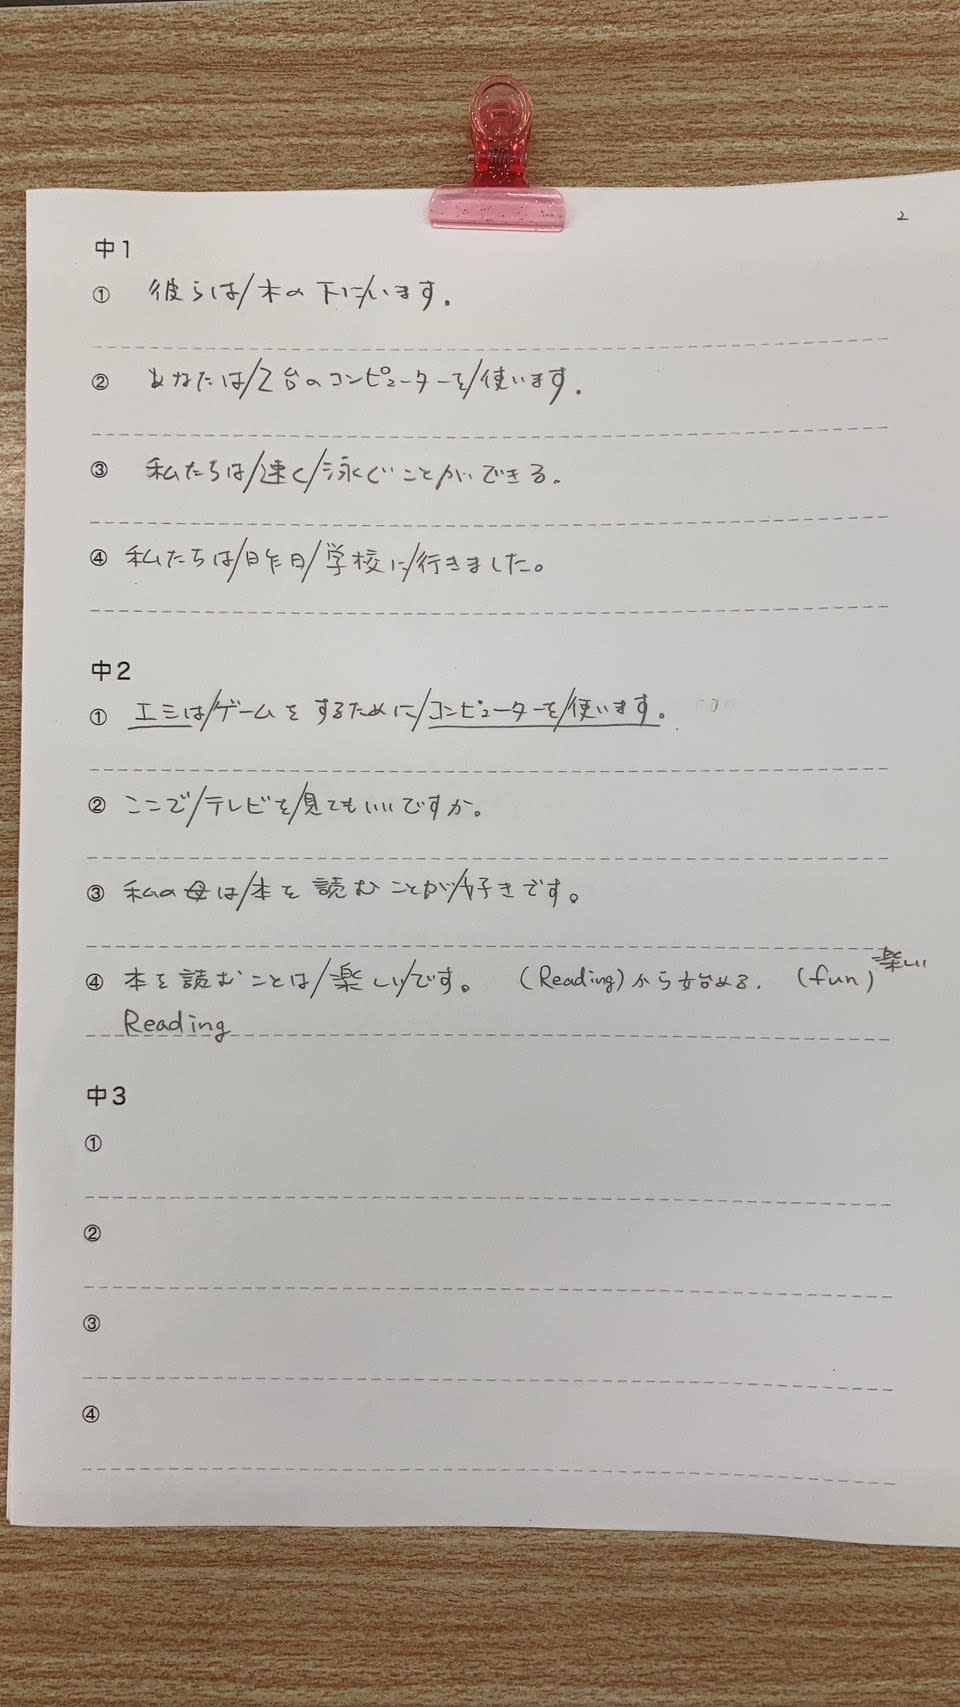 2
中1
① 彼らは/木の下に/います。
② あなたは/2台のコンピューターを/使います。
③ 私たちは/速く/泳ぐことができる。
④ 私たちは/昨日/学校に/行きました。
中2
① エミは/ゲームをするために/コンピューターを/使います。
② ここで/テレビを/見てもいいですか。
③ 私の母は/本を読むことが/好きです。
④ 本を読むことは/楽しい/です。 (Reading)から始める. (fun)楽しい
Reading
中3
①
②
③
④